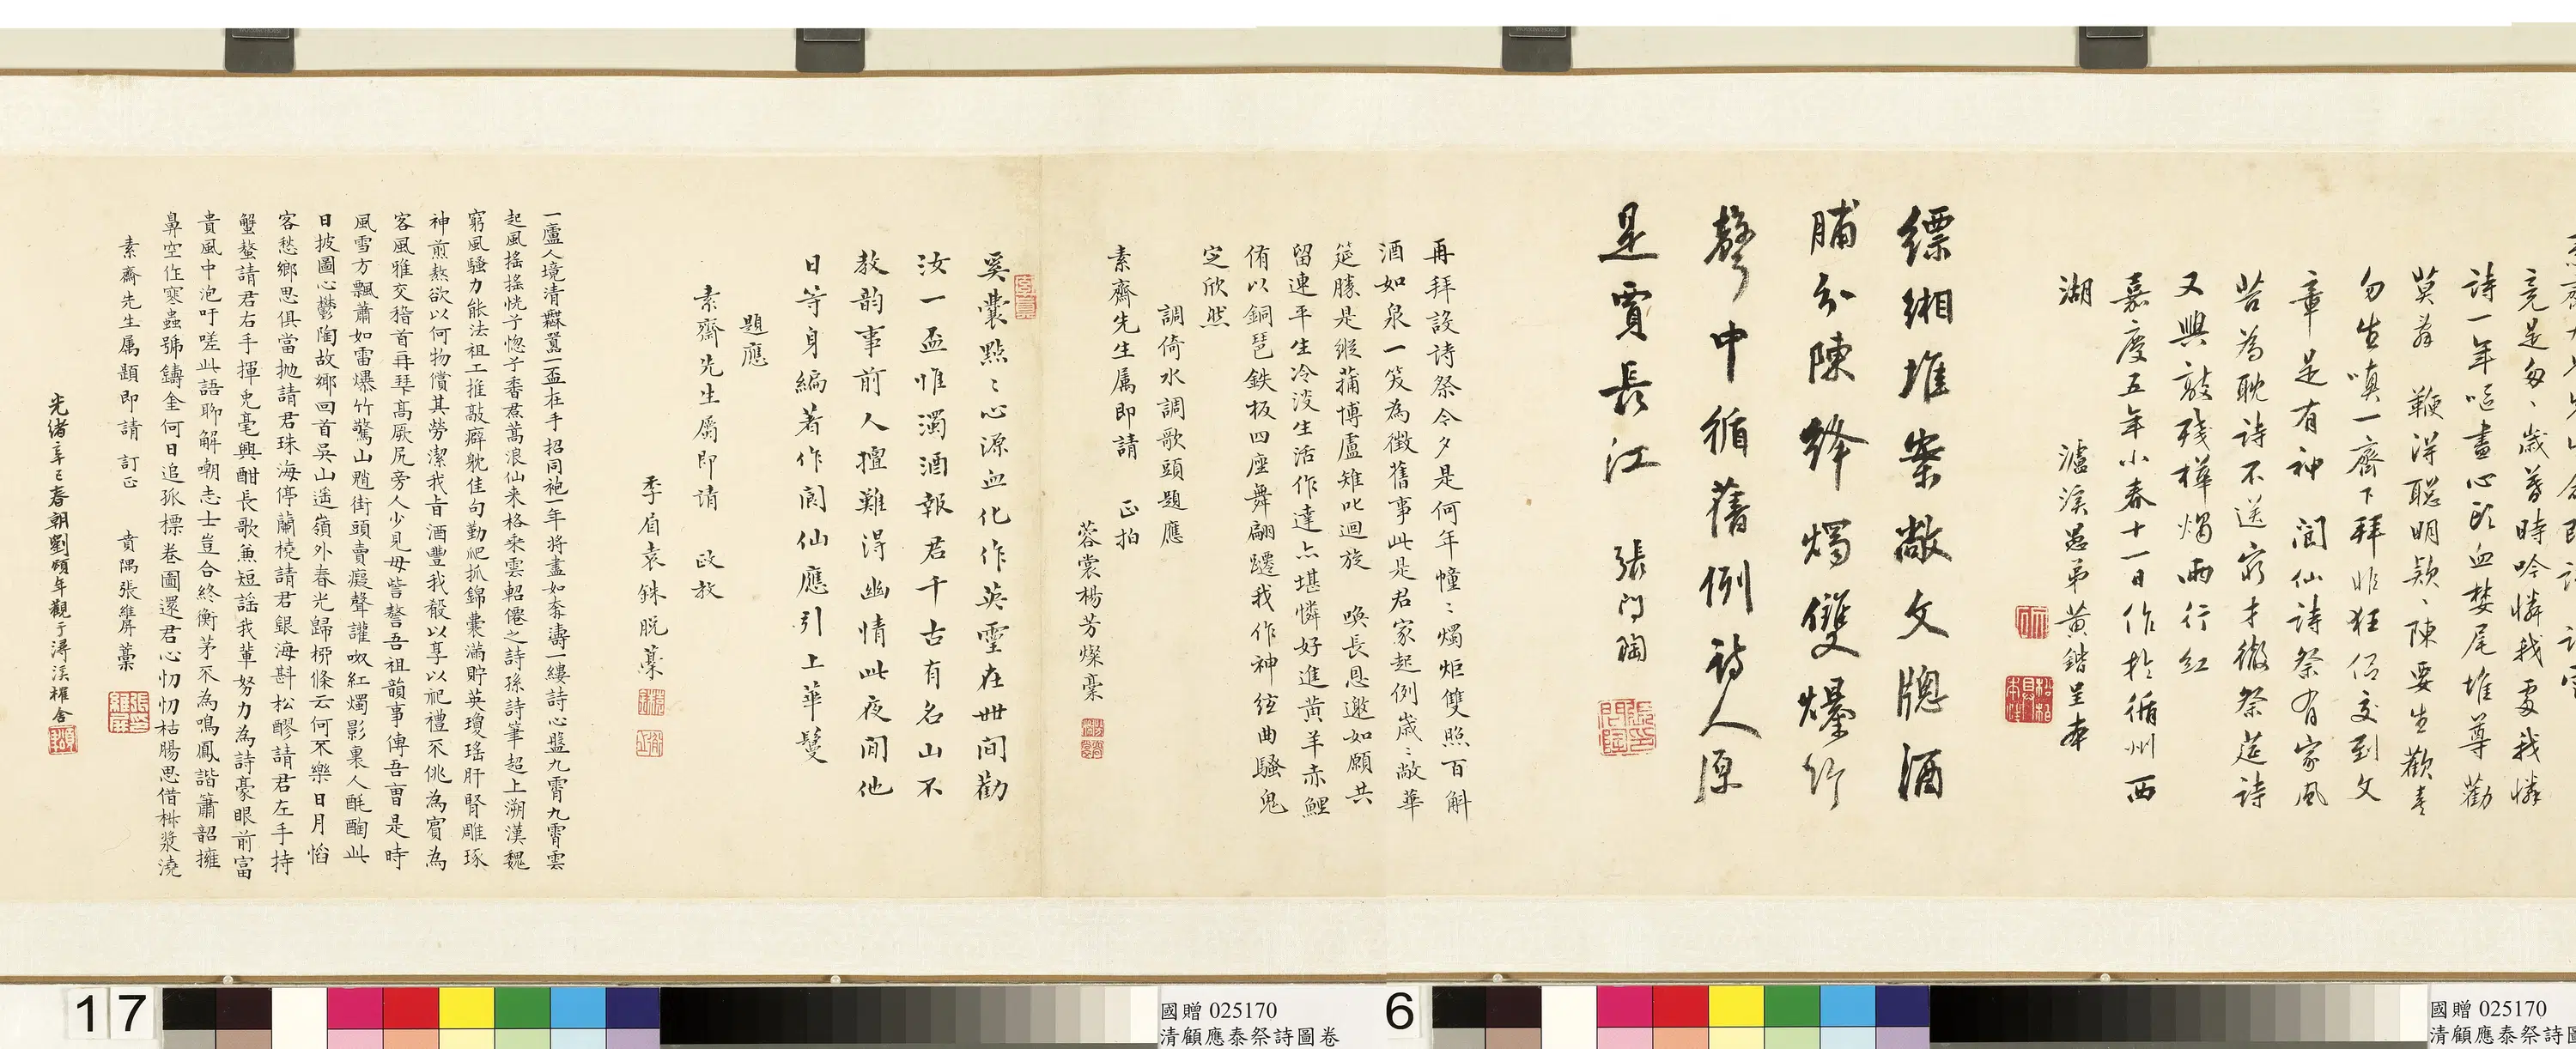 竟是匆、歲暮時吟憐我更我憐
詩一年嘔盡心頭血婪尾堆尊勸
莫辭 鞭得聰明穎、陳要生歡喜
勿生嗔一齊下拜非狂侶交到文
章是有神 閬仙詩祭有家風
苦為耽詩不送窮才徹祭筵詩
又興敲殘樺燭兩行紅
嘉慶五年小春十一日作於循州西
湖 瀘溪愚弟黃鍇呈本
縹緗堆案敞文牕酒
脯分陳絳燭雙爆竹
聲中循舊例詩人原
是賈長江 張問陶
再拜設詩祭今夕是何年幢〻燭炬雙照百斛
酒如泉一笑為徵舊事此是君家起例歲〻敞華
筵勝是縱蒲博盧雉叱迴旋 喚長恩邀如願共
留連平生冷淡生活作達亦堪憐好進黃羊赤鯉
侑以銅琶鉄板四座舞翩躚我作神絃曲騷鬼
定欣然
調倚水調歌頭題應
素齋先生属即請 正拍
蓉裳楊芳燦稾
奚囊點〻心源血化作英靈在世间勸
汝一盃惟濁酒報君千古有名山不
教韵事前人擅難得幽情此夜闲他
日等身編著作閬仙應引上華鬘
題應
素齋先生屬即请 政教
季眉袁銖脱藁
一廬人境清羃䍥一盃在手招同袍一年將盡如奔濤一縷詩心盤九霄九霄雲
起風搖搖恍乎惚乎香焄蒿浪仙来格乘雲軺僊之詩孫詩筆超上溯漢魏
窮風騷力能法祖工推敲癖躭佳句勤爬抓錦囊滿貯英瓊瑤肝腎雕琢
神煎熬欲以何物償其勞潔我旨酒豐我殽以享以祀禮不佻為賓為
客風雅交稽首再拜高厥尻旁人少見毋訾謷吾祖韻事傳吾曹是時
風雪方飄蕭如雷爆竹驚山魈街頭賣癡聲讙呶紅燭影裏人酕醄此
日披圖心鬱陶故鄉回首吳山遥嶺外春光歸柳條云何不樂日月慆
客愁鄉思俱當抛請君珠海停蘭橈請君銀海斟松醪請君左手持
蟹螯請君右手揮兔毫興酣長歌兼短謠我輩努力為詩豪眼前富
貴風中泡吁嗟此語聊解嘲志士豈合終衡茅不為鳴鳳諧簫韶擁
鼻空作寒蟲號鑄金何日追孤標卷圖還君心忉忉枯腸思借椒漿澆
素齋先生属題即請 訂正 賁隅張維屏藁
光緒辛巳春朝劉頌年觀于潯溪榷舍
17
國贈 025170
清顧應泰祭詩圖卷
6
國贈 025170
清顧應泰祭詩圖